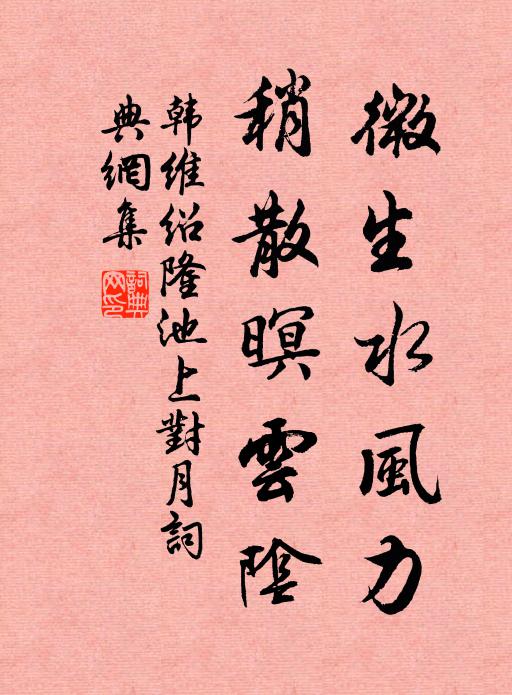 微生水風力
稍散暝雲陰
韩維绍隆池上對月詞
典網集
詞典網印